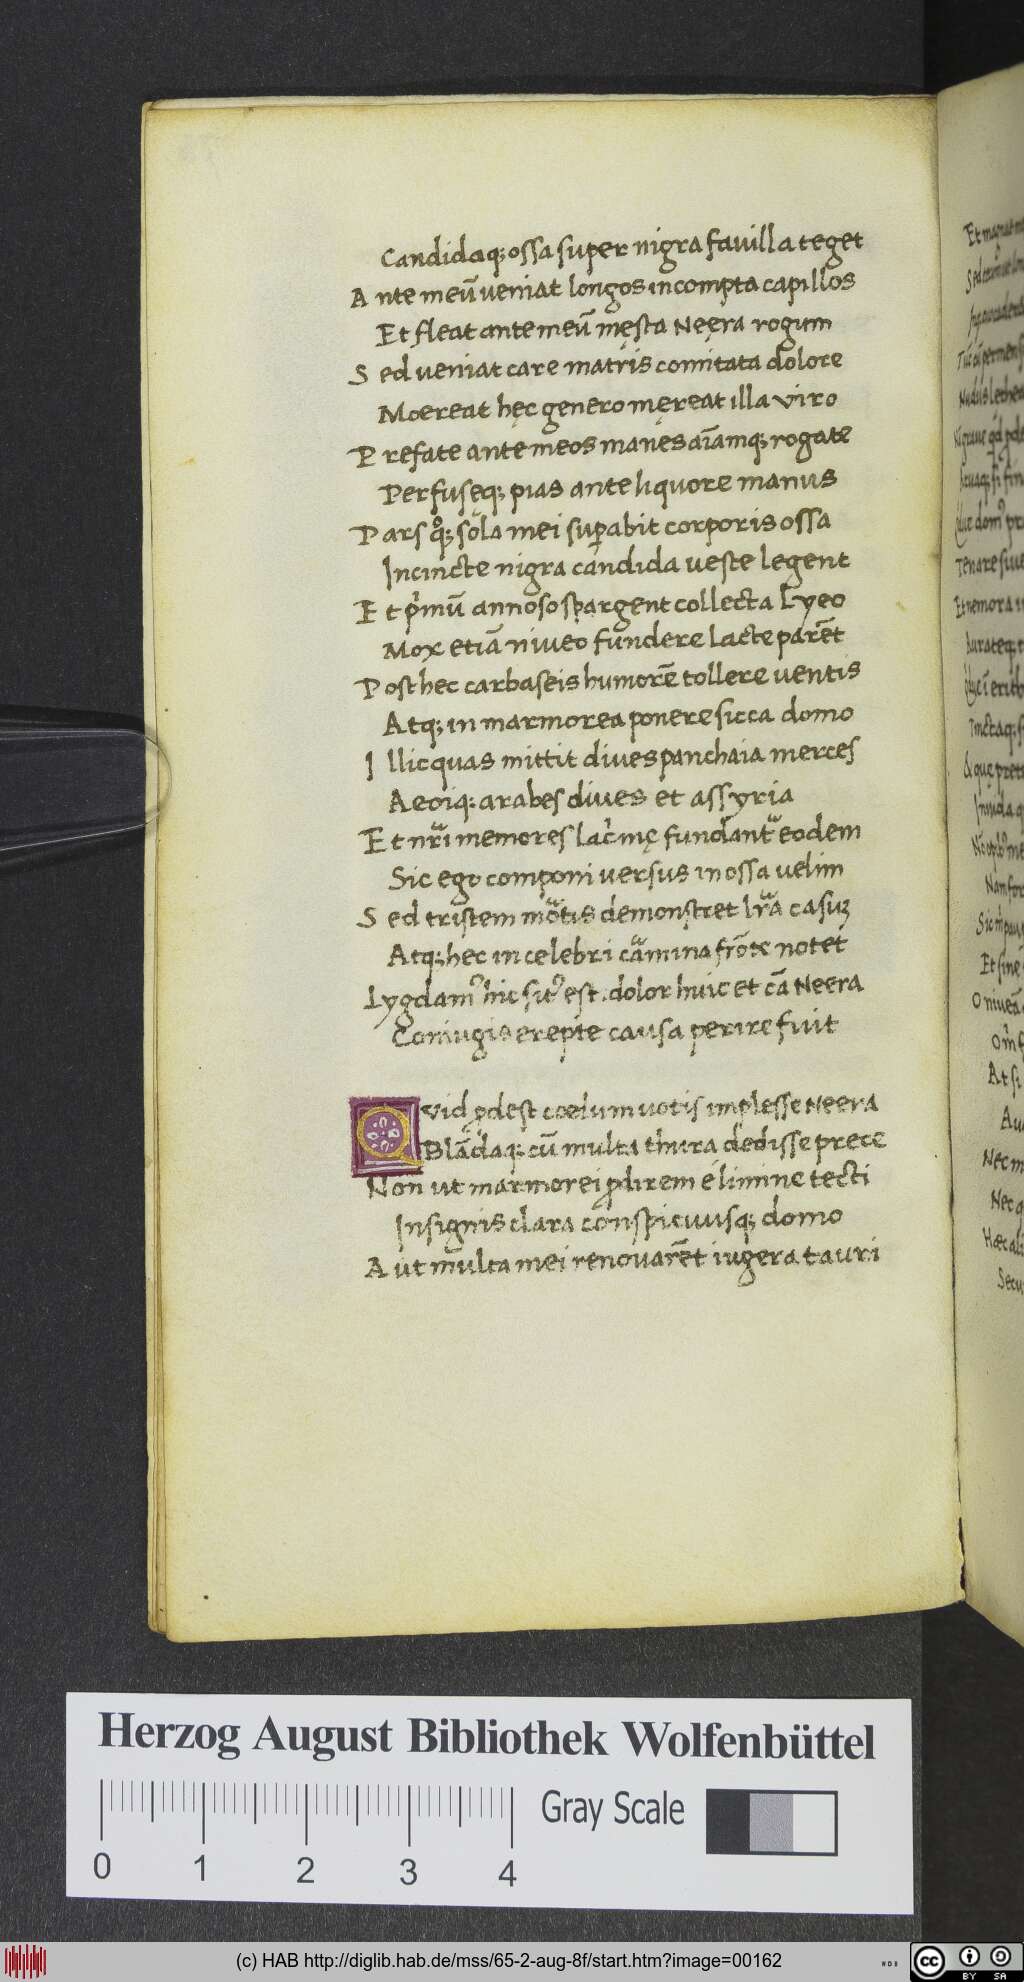 Candidaq; ossa super nigra fauilla teget
A nte meū veniat longos incompta capillos
Et fleat ante meū męsta Neęra rogum
S ed veniat care matris comitata dolore
Moereat hęc genero męreat illa viro
P refate ante meos manes aīamq; rogate
Perfusęq; pias ante liquore manus
P ars qͦ; sola mei supabit corporis ossa
Incincte nigra candida ueste legent
E t pͥmū annoso spargent collecta Lyeo
Mox etiā niueo fundere lacte parēt
P ost hec carbaseis humorē tollere ventis
Atq; in marmorea ponere sicca domo
I llic quas mittit diues panchaia merces
Aeoiq; arabes diues et assyria
E t nr̄i memores lacͥmę fundant̄ eodem
Sic ego componi versus in ossa uelim
S ed tristem mōtis demonstret lr̄a casuʒ
Atq; hec in celebri cāmina frōte notet
Lygdamꝰ hic sitꝰ est. dolor huic et cā Neera
Coniugis erepte causa perire fuit
Qvid ꝓdest coelum uotis implesse Neera
Blādaq; cū multa thura dedisse prece
Non ut marmorei ꝓdirem é limine tecti
Insignis clara conspicuusq; domo
A ut multa mei renouarēt iugera tauri
Herzog August Bibliothek Wolfenbüttel
0 1 2 3 4
Gray Scale
(c) HAB http://diglib.hab.de/mss/65-2-aug-8f/start.htm?image=00162
cc BY SA